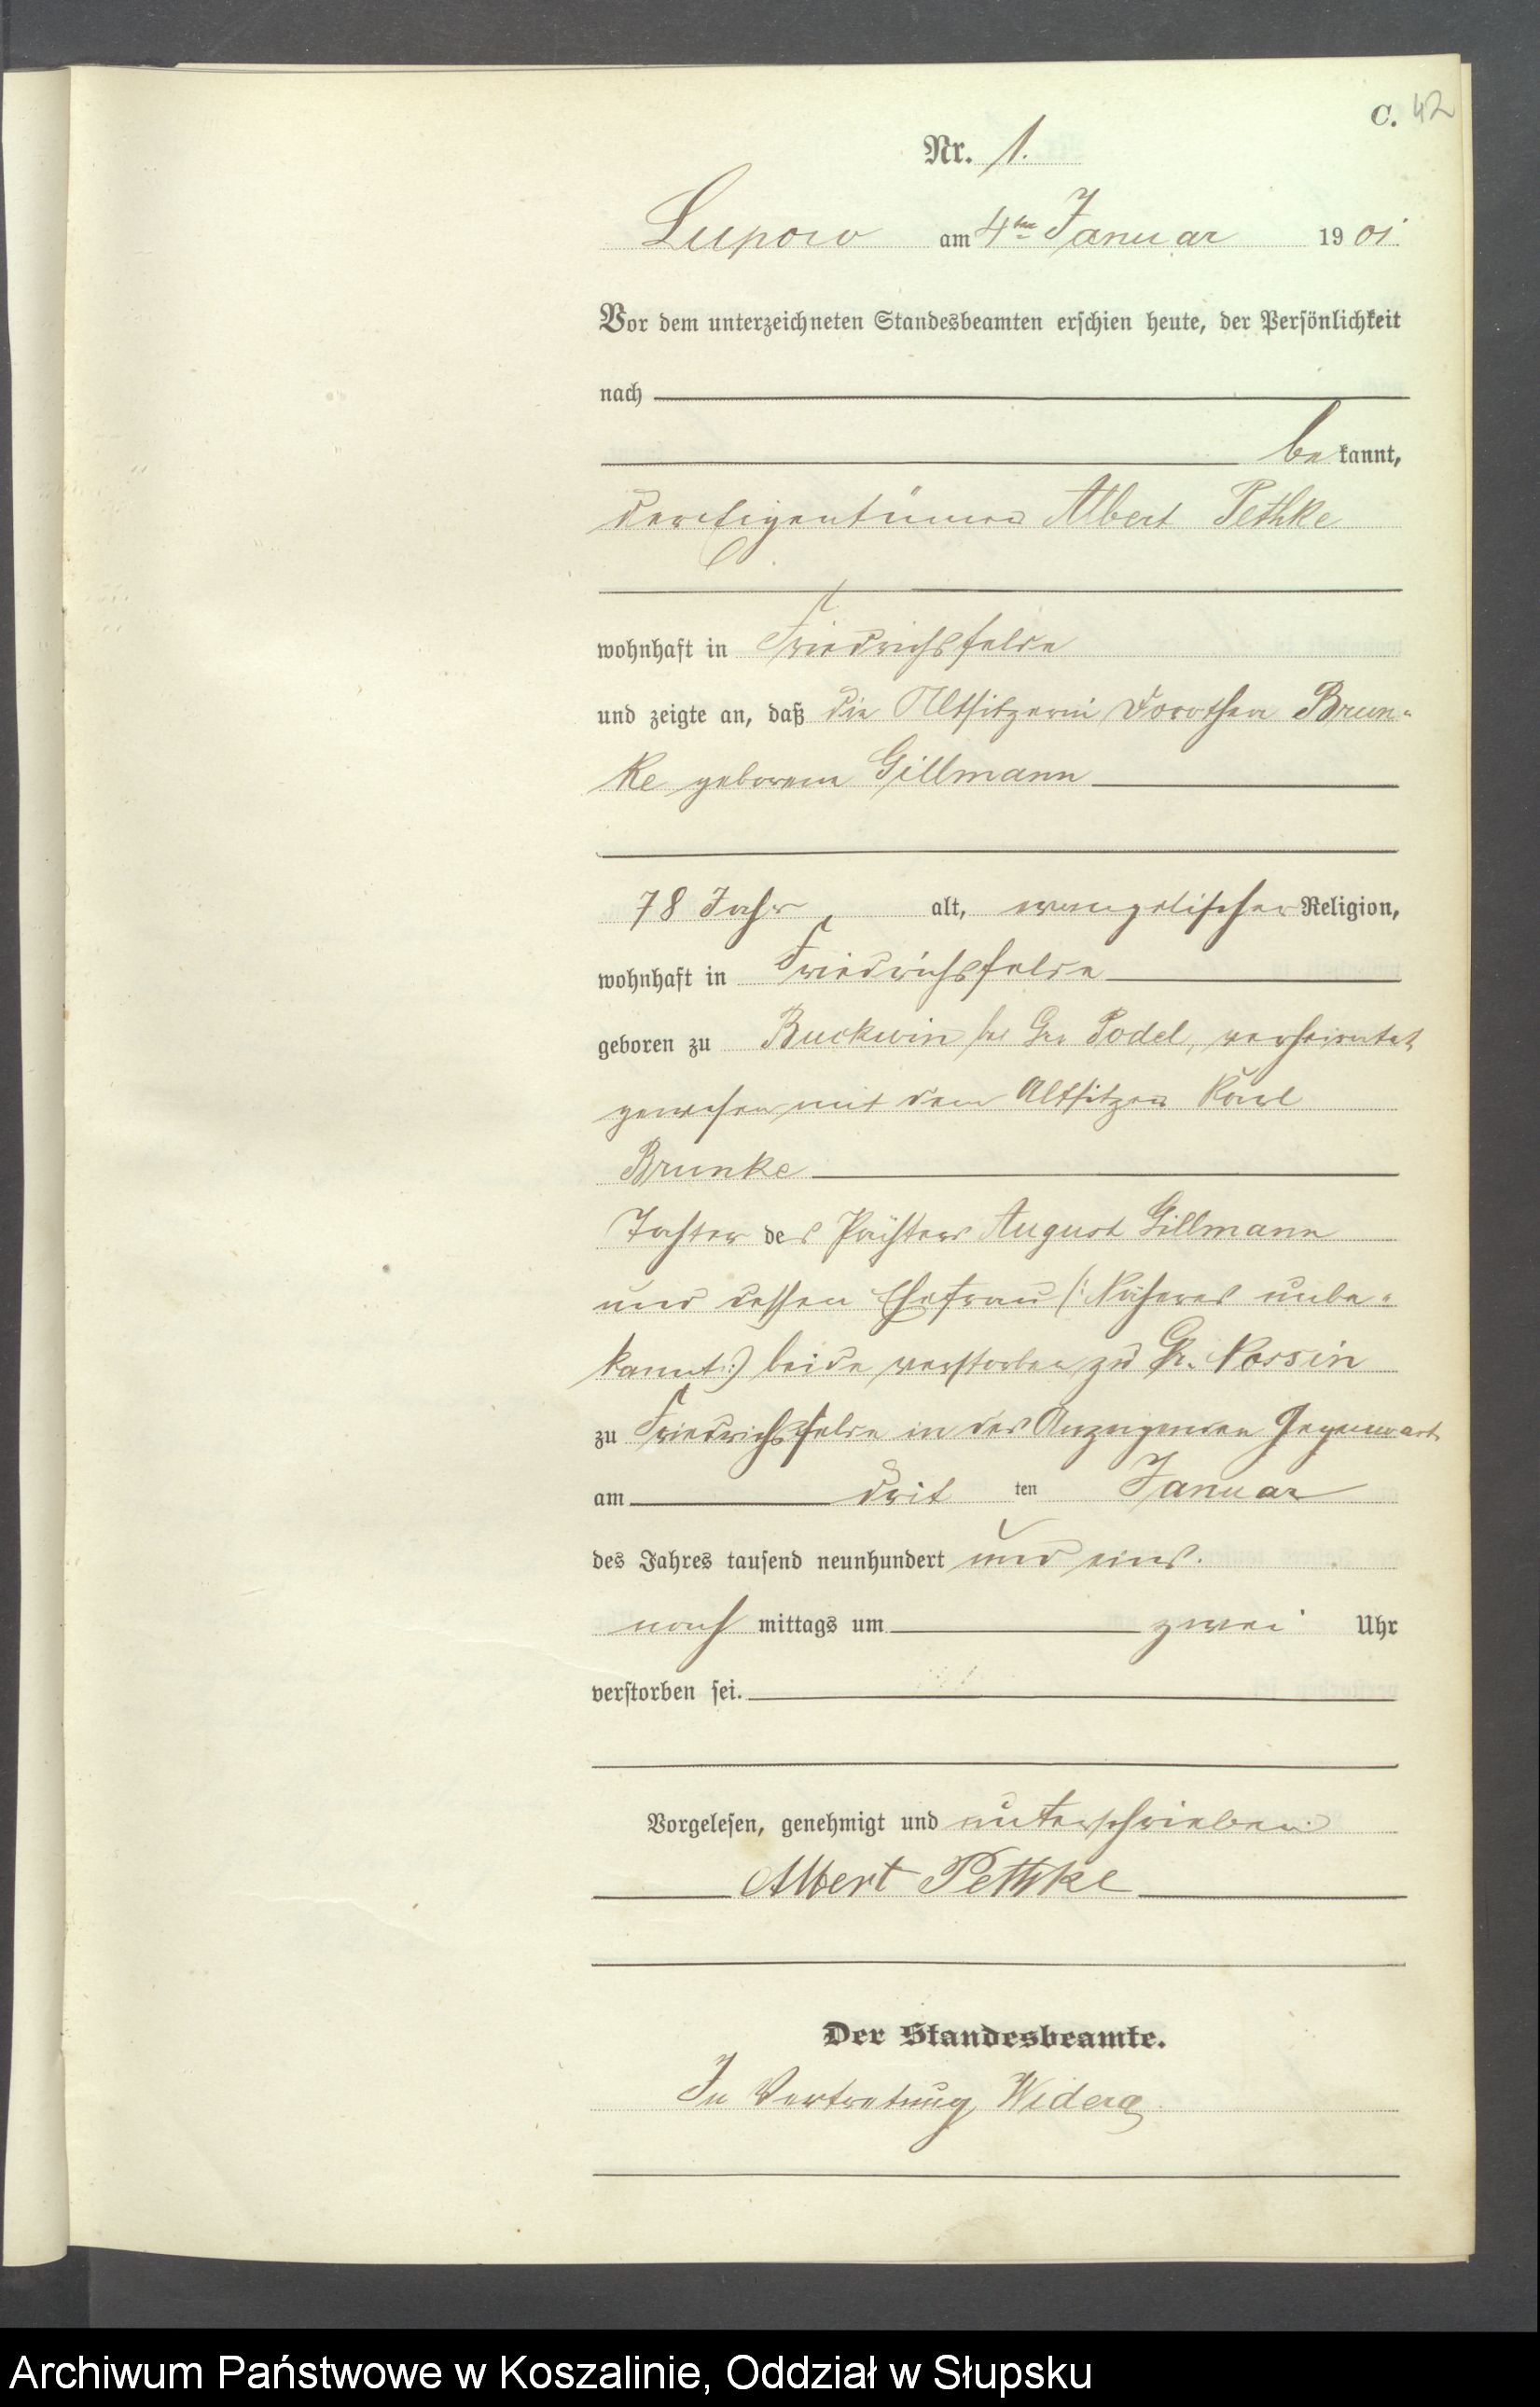 C. 42
Nr. 1.
Lupow am 4ten Januar 1901.
Vor dem unterzeichneten Standesbeamten erschien heute, der Persönlichkeit
nach
be kannt,
der Eigentümer Albert Pethke
wohnhaft in Friedrichsfelde
und zeigte an, daß die Altsitzerin Dorothea Brun-
ke geborene Gillmann
78 Jahr alt, evangelischer Religion,
wohnhaft in Friedrichsfelde
geboren zu Buckwin Gr. Podel, verheiratet
gewesen mit dem Altsitzer Karl
Brunke
Tochter des Pächters August Gillmann
und dessen Ehefrau (: Näheres unbe-
kannt :) beide verstorben zu Gr. Nossin
zu Friedrichsfelde in des Anzeigenden Gegenwart
am drit ten Januar
des Jahres tausend neunhundert und eins.
nach mittags um zwei Uhr
verstorben sei.
Vorgelesen, genehmigt und unterschrieben
Albert Pethke
Der Standesbeamte.
In Vertretung
Archiwum Państwowe w Koszalinie, Oddział w Słupsku